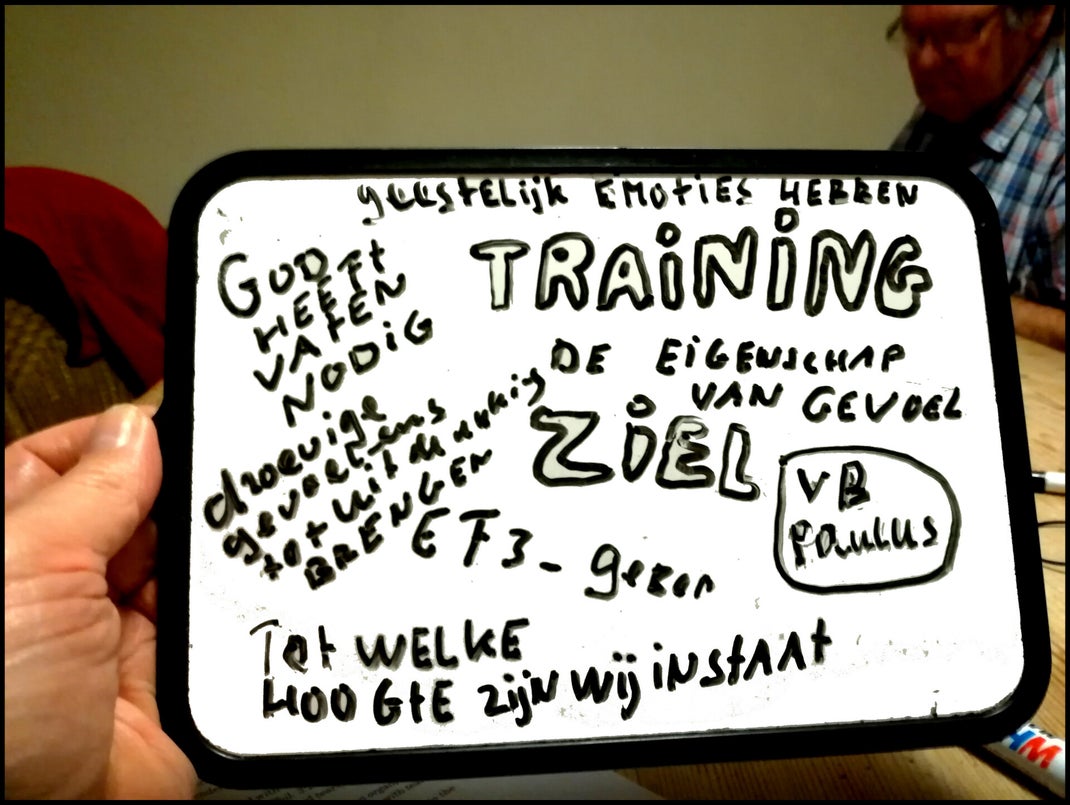 geestelijk EMOTIES HEBBEN
TRAiNiNG
GOD
HEEFt
VATEN
NODiG
DE EiGENSCHAP
VAN GEVOEL
ZiEL
droevige
gevoelens
tot uit
BRENGEN
VB
PAULUS
EF3-
Tot WELKE
HOOGtE zijN wij iNStAAt
HM